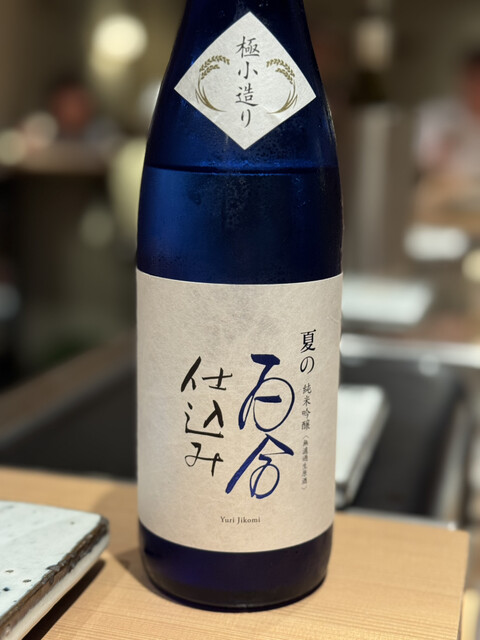 極小造り
夏の 純米吟醸(無濾過生原酒)
百合
仕込み
Yuri Jikomi